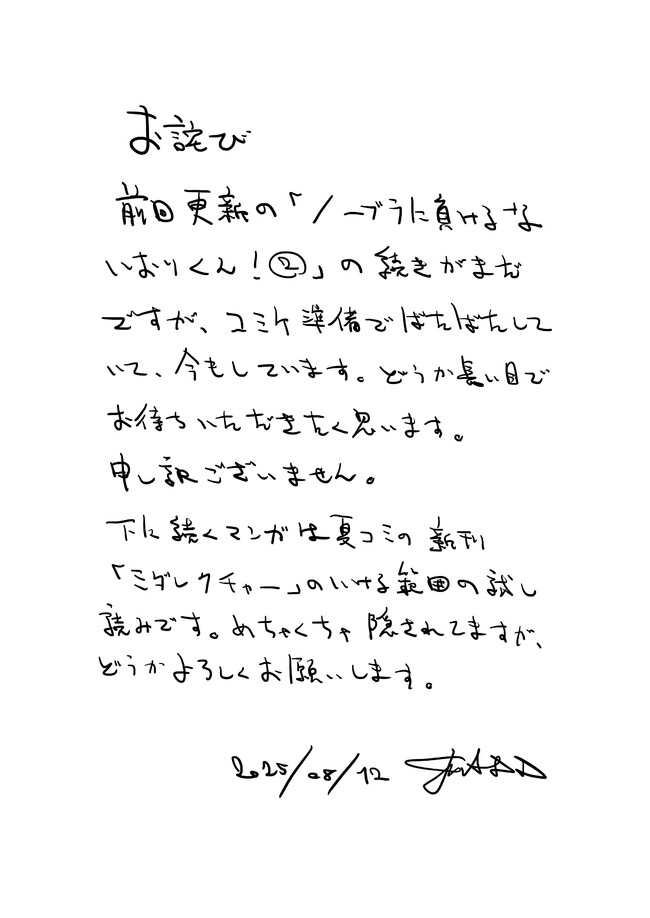 お詫び
前回更新の「ノーブラに負けるな
いおりくん！②」の続きがまだ
ですが、コミケ準備でばたばたして
いて、今もしています。どうか長い目で
お待ちいただきたく思います。
申し訳ございません。
下に続くマンガは夏コミの新刊
「ミダレクチャー」のいける範囲の試し
読みです。めちゃくちゃ隠されてますが、
どうかよろしくお願いします。
2025/08/12